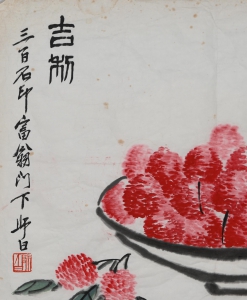 吉利
三百石印富翁門下師白